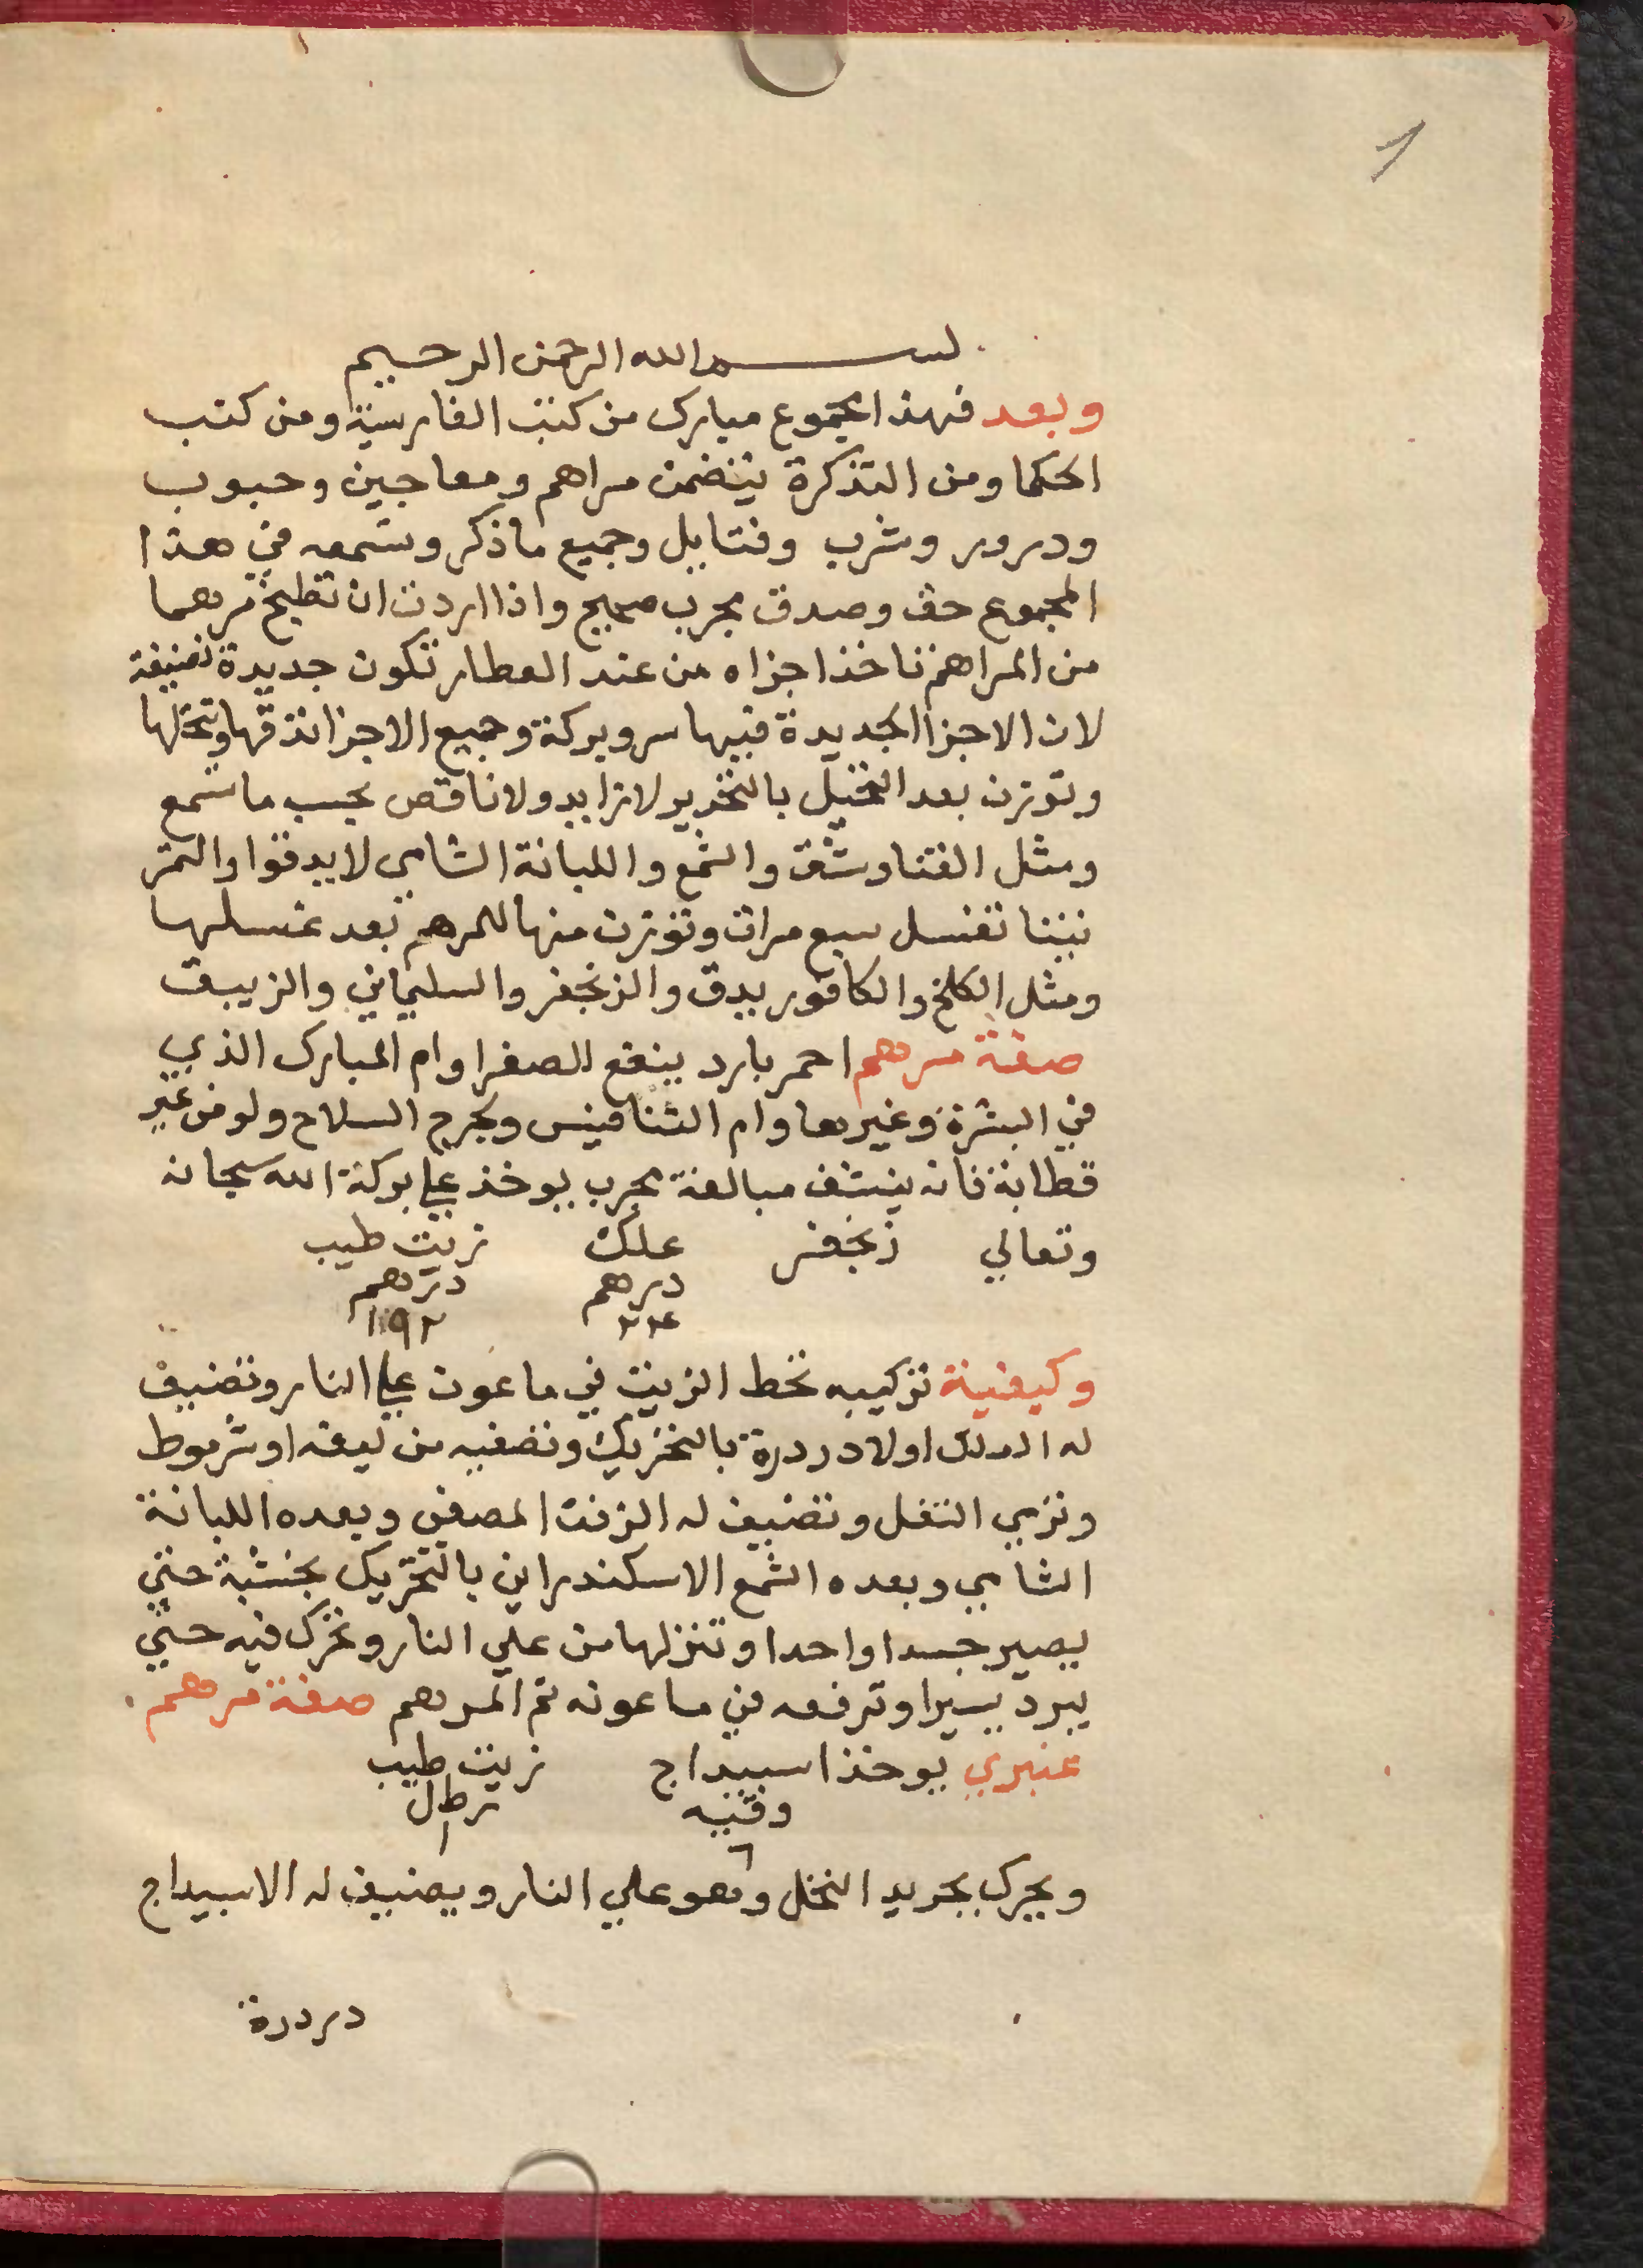 1
بسم الله الرحمن الرحيم
وبعد فهذا مجموع مبارك من كتب الفارسية ومن كتب
الحكما ومن التذكرة يتضمن مراهم ومعاجين وحبوب
ودرور وشرب وفتايل وجميع ما ذكر وتسمعه في هذا
المجموع حق وصدق مجرب صحيح واذا اردت ان تطبخ مرهما
من المراهم تاخذ اجزاه من عند العطار تكون جديدة نضيفة
لان الاجزا الجديدة فيها سر وبركة وجميع الاجزا تدقها وتنخلها
وتوزن بعد النخيل بالتحرير لا زايد ولا ناقص بحسب ما تسمع
ومثل القناوشق والشمع واللبانة الشامي لا يدقوا والتمر
تبنا تغسل سبع مرات وتوزن منها للمرهم بعد غسلها
ومثل الكلخ والكافور يدق والزنجفر والسليماني والزيبق
صفة مرهم احمر بارد ينفع الصفرا وام المبارك الذي
في البشرة وغيرها وام الشنافيس وبجرح السلاح ولو من غير
قطابة فانه ينشف مبالغة مجرب يوخذ علي بركة الله سبحانه
وتعالي زنجفر علك زيت طيب
درهم درهم
٢٤ ١٩٢
وكيفية تركيبه تحط الزيت في ماعون علي النار وتضيف
له العلك اولا دردرة بالتحريك وتصفيه من ليقه او شرموط
وترمي التفل وتضيف له الزفت المصفي وبعده اللبانة
الشامي وبعده الشمع الاسكندراني بالتحريك بخشبة حتي
يصير جسدا واحدا وتنزلها من علي النار وتحرك فيه حتي
يبرد يسيرا وترفعه في ماعونه تم المرهم صفة مرهم
عنبري يوخذ اسبيداج زيت طيب
وقيه رطل
٦ ١
ويحرك بجريد النخل وهو علي النار ويضيف له الاسبيداج
دردرة